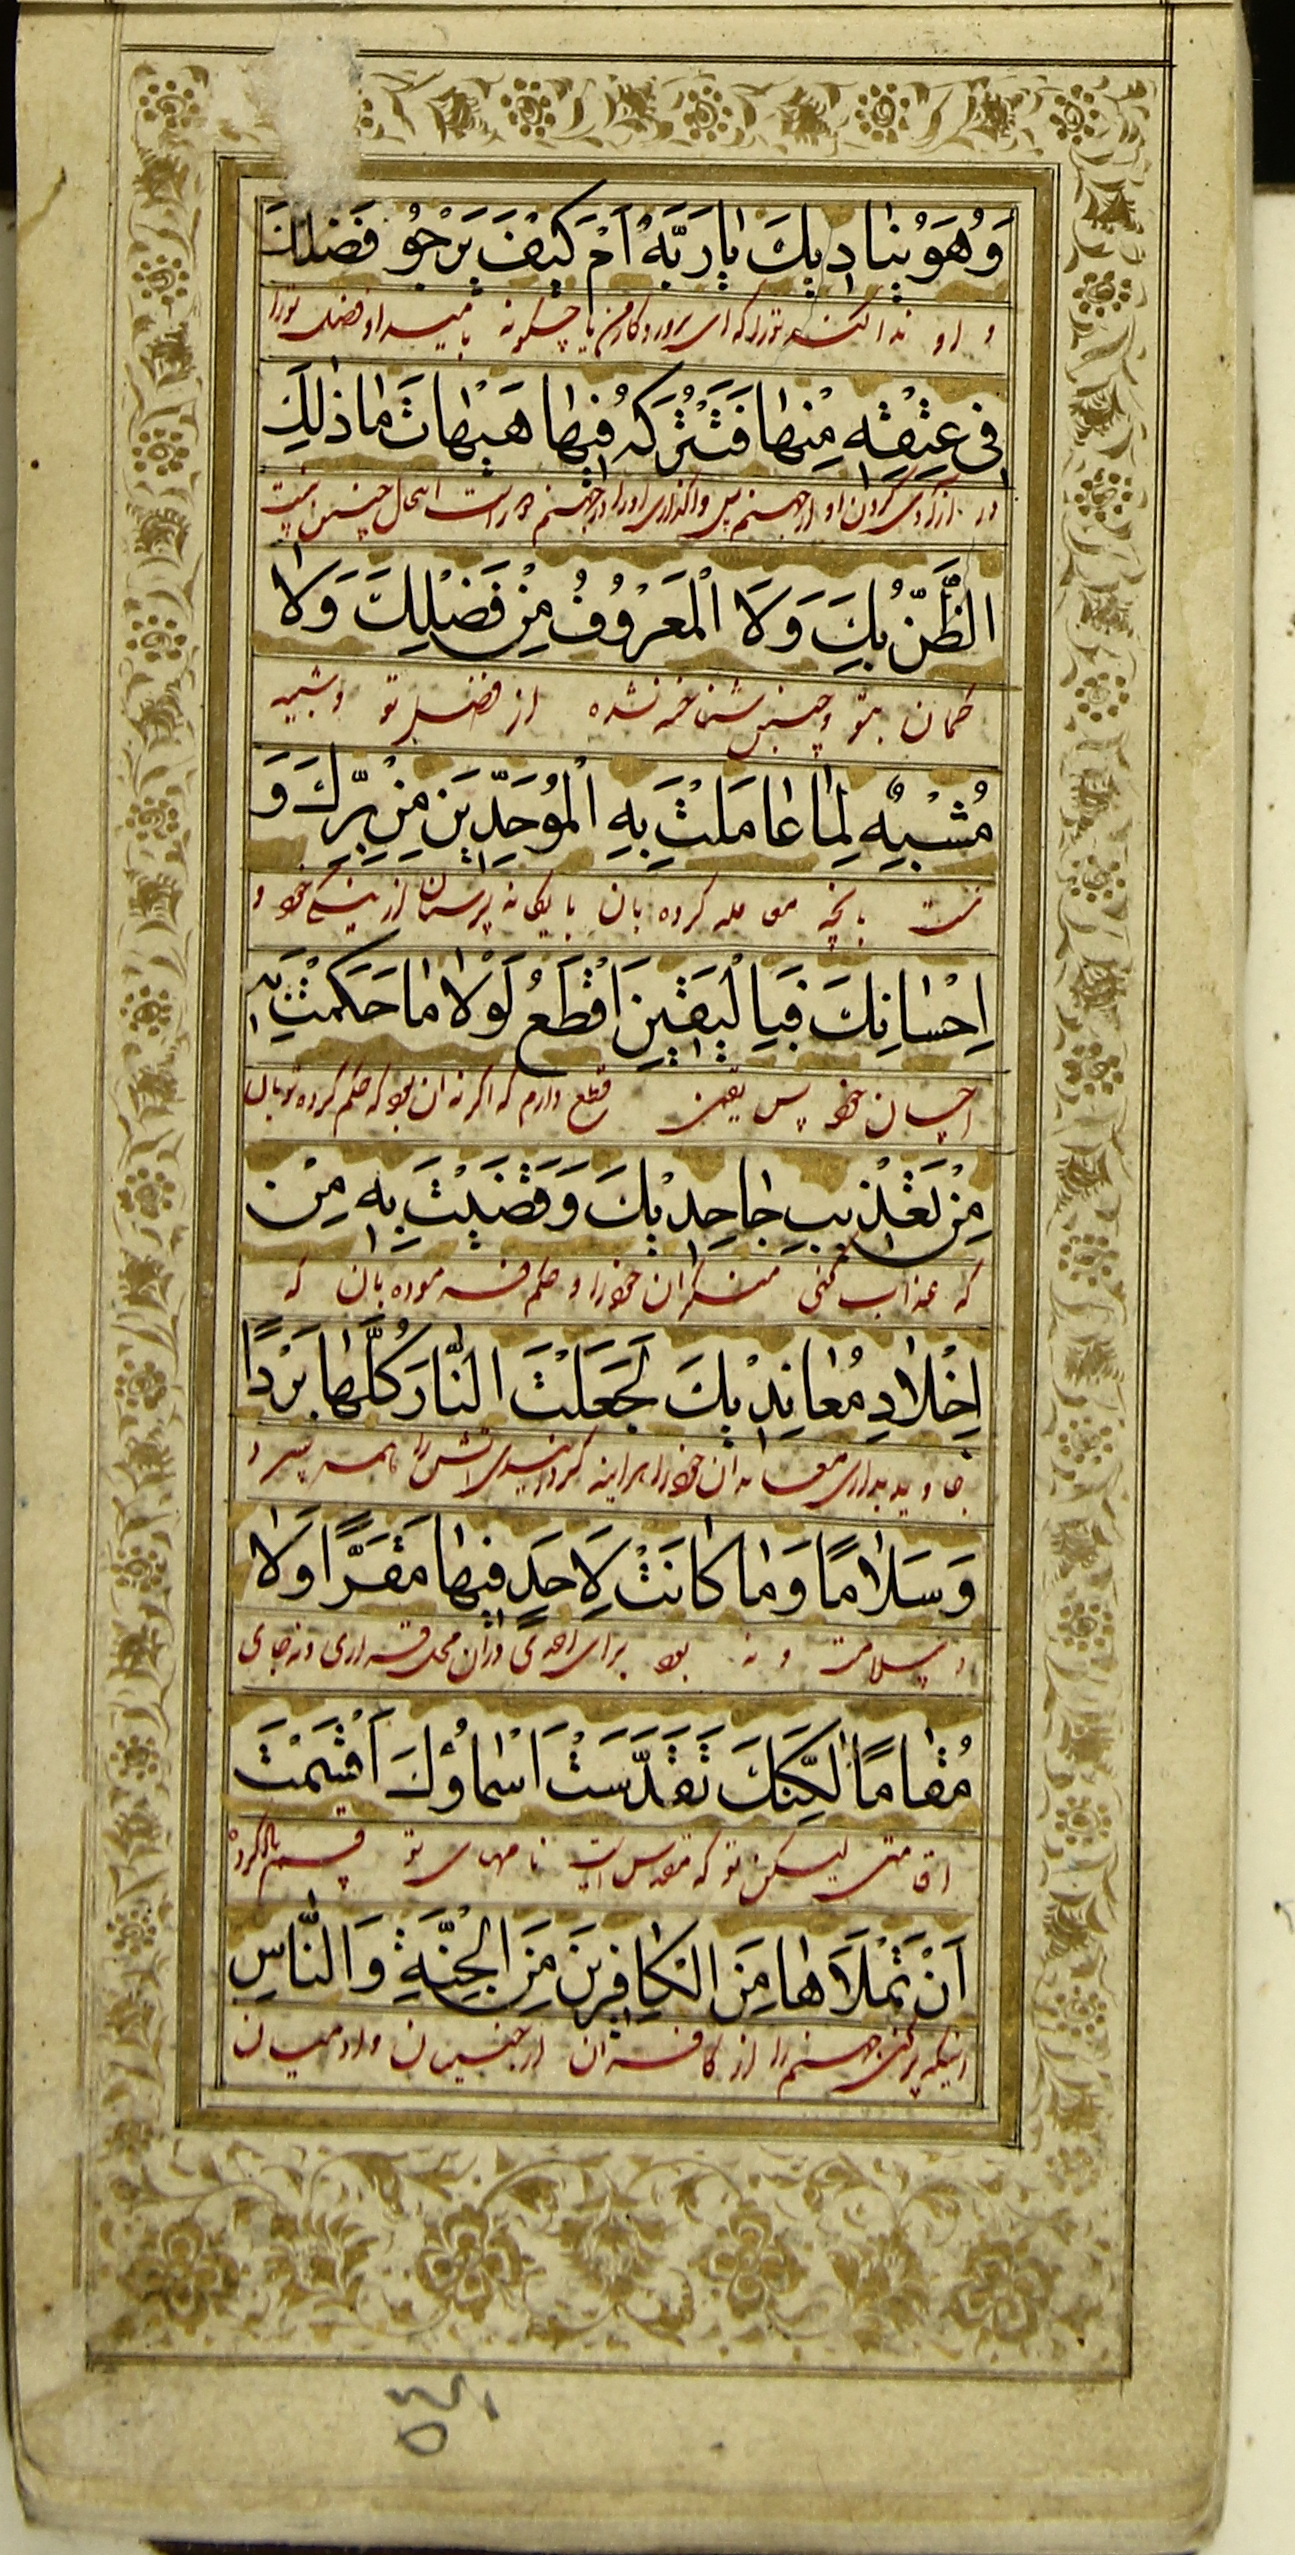 وَهُوَ يُنٰادٖيكَ يٰارَبَّهُ اَمْ كَيْفَ يَرْجُو فَضْلَكَ
و او ندا کند تورا که ای پروردکار من یا چکونه بامید او فضل تورا
فی عِتْقِهِ مِنْهٰا فَتَتْرُكَهُ فٖيهٰا هَيْهٰاتَ مٰا ذٰلِكَ
در ازادی کردن او از جهنم پس واکذاری اورا در جهنم دور است اینحال چنین نیست
الظَّنُّ بِكَ وَلَا الْمَعْرُوفُ مِنْ فَضْلِكَ وَلٰا
کمان بتو و چنین شناخته نشده از فضل تو و شبیه
مُشْبِهٌ لِمٰا عٰامَلْتَ بِهِ الْمُوَحِّدٖينَ مِنْ بِرِّكَ وَ
نیست بانچه معامله کرده بان با یکانه پرستان از نیکی خود و
اِحْسٰانِكَ فَبِالْيَقٖينِ اَقْطَعُ لَوْلٰا مٰا حَكَمْتَ بِهِ
احسان خود پس بیقین قطع دارم که اکر نه ان بود که حکم کرده تو بان
مِنْ تَعْذٖيبِ جٰاحِدٖيكَ وَقَضَيْتَ بِهِ مِنْ
که عذاب کنی منکران خود را و حکم فرموده بان که
اِخْلٰادِ مُعٰانِدٖيكَ لَجَعَلْتَ النّٰارَ كُلَّهٰا بَرْدًا
جاوید بداری معاندان خود را هراینه کردانیدی اتش را همه سرد
وَ سَلٰامًا وَ مٰا كٰانَتْ لِاَحَدٍ فٖيهٰا مَقَرًّا وَلٰا
و سلامت و نه بود برای احدی دران محل قراری و نه جای
مُقٰامًا لٰكِنَّكَ تَقَدَّسَتْ اَسْمٰاؤُكَ اَقْسَمْتَ
اقامتی لیکن تو که مقدس است نامهای تو قسم یاد کرده
اَنْ تَمْلَاَهٰا مِنَ الْكٰافِرٖينَ مِنَ الْجِنَّةِ وَ النّٰاسِ
اینکه پر کنی جهنم را از کافران از جنیان و ادمیان